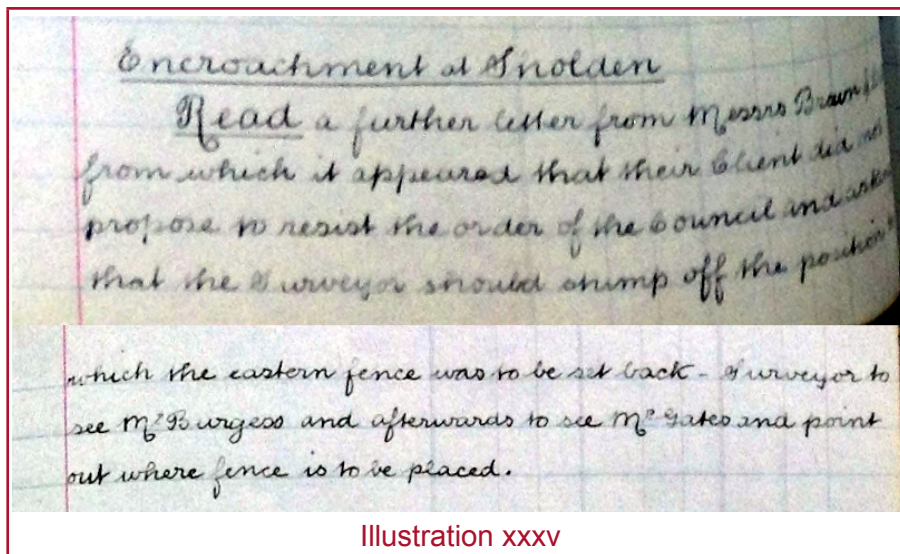 Encroachment at Snolden
Read a further letter from Messrs Brown &
from which it appeared that their Client did not
propose to resist the order of the Council and
that the Surveyor should stump off the position
which the eastern fence was to be set back - Surveyor to
see Mr Burgess and afterwards to see Mr Gates and point
out where fence is to be placed.
Illustration xxxv